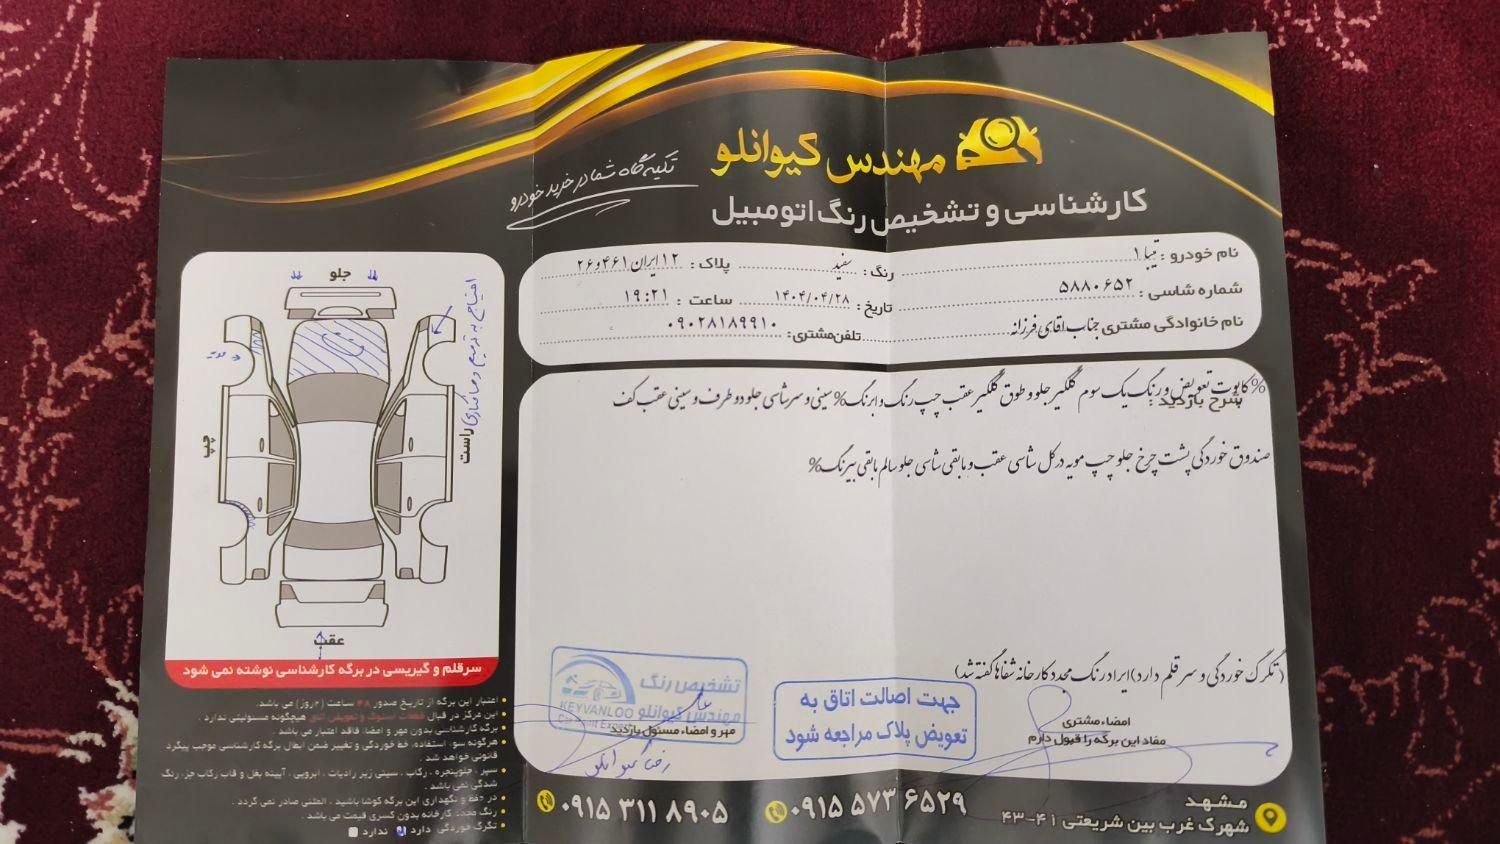 مهندس کیوانلو
تکیه گاه شما در خرید خودرو
کارشناسی و تشخیص رنگ اتومبیل
نام خودرو : تیبا ۱ رنگ : سفید پلاک : ۱۲ ایران ۴۶۱ و ۲۶
شماره شاسی : ۵۸۸۰۶۵۲ تاریخ : ۱۴۰۴/۰۴/۲۸ ساعت : ۱۹:۲۱
نام خانوادگی مشتری جناب اقای فرزانه تلفن مشتری: ۰۹۰۲۸۱۸۹۹۱۰
شرح بازدید :
%کاپوت تعویض و رنگ یک سوم گلگیر جلو و طوق گلگیر عقب چپ رنگ و ابرنگ%سینی و سرشاسی جلو دو طرف و سینی عقب کف
صندوق خوردگی پشت چرخ جلو چپ مویه در کل شاسی عقب و مابقی شاسی جلو سالم مابقی بیرنگ%
(تگرگ خوردگی و سرقلم دارد)ایراد رنگ مجدد کارخانه شفاها گفته شد)
امضاء مشتری
مفاد این برگه را قبول دارم
جهت اصالت اتاق به
تعویض پلاک مراجعه شود
تشخیص رنگ
مهندس کیوانلو KEYVANLOO
مهر و امضاء مسئول بازدید
رضا کیوانلو
جلو
احتیاج به ترمیم و صافکاری
چپ
راست
عقب
سرقلم و گیریسی در برگه کارشناسی نوشته نمی شود
اعتبار این برگه از تاریخ صدور ۴۸ ساعت (۲روز) می باشد.
این مرکز در قبال قطعات استوک و تعویض اتاق هیچگونه مسئولیتی ندارد .
برگه کارشناسی بدون مهر و امضا فاقد اعتبار می باشد .
هرگونه سوء استفاده، خط خوردگی و تغییر ضمن ابطال برگه کارشناسی موجب پیگرد
قانونی خواهد شد .
سپر ، جلوپنجره ، رکاب ، سینی زیر رادیات ، ابرویی ، آیینه بغل و قاب رکاب جزء رنگ
شدگی نمی باشد .
در حفظ و نگهداری این برگه کوشا باشید ، المثنی صادر نمی گردد .
رنگ مجدد کارخانه بدون کسری قیمت می باشد .
تگرگ خوردگی دارد ندارد
۰۹۱۵ ۳۱۱ ۸۹۰۵
۰۹۱۵ ۵۷۳ ۶۵۲۹
مشهد
شهرک غرب بین شریعتی ۴۱-۴۳